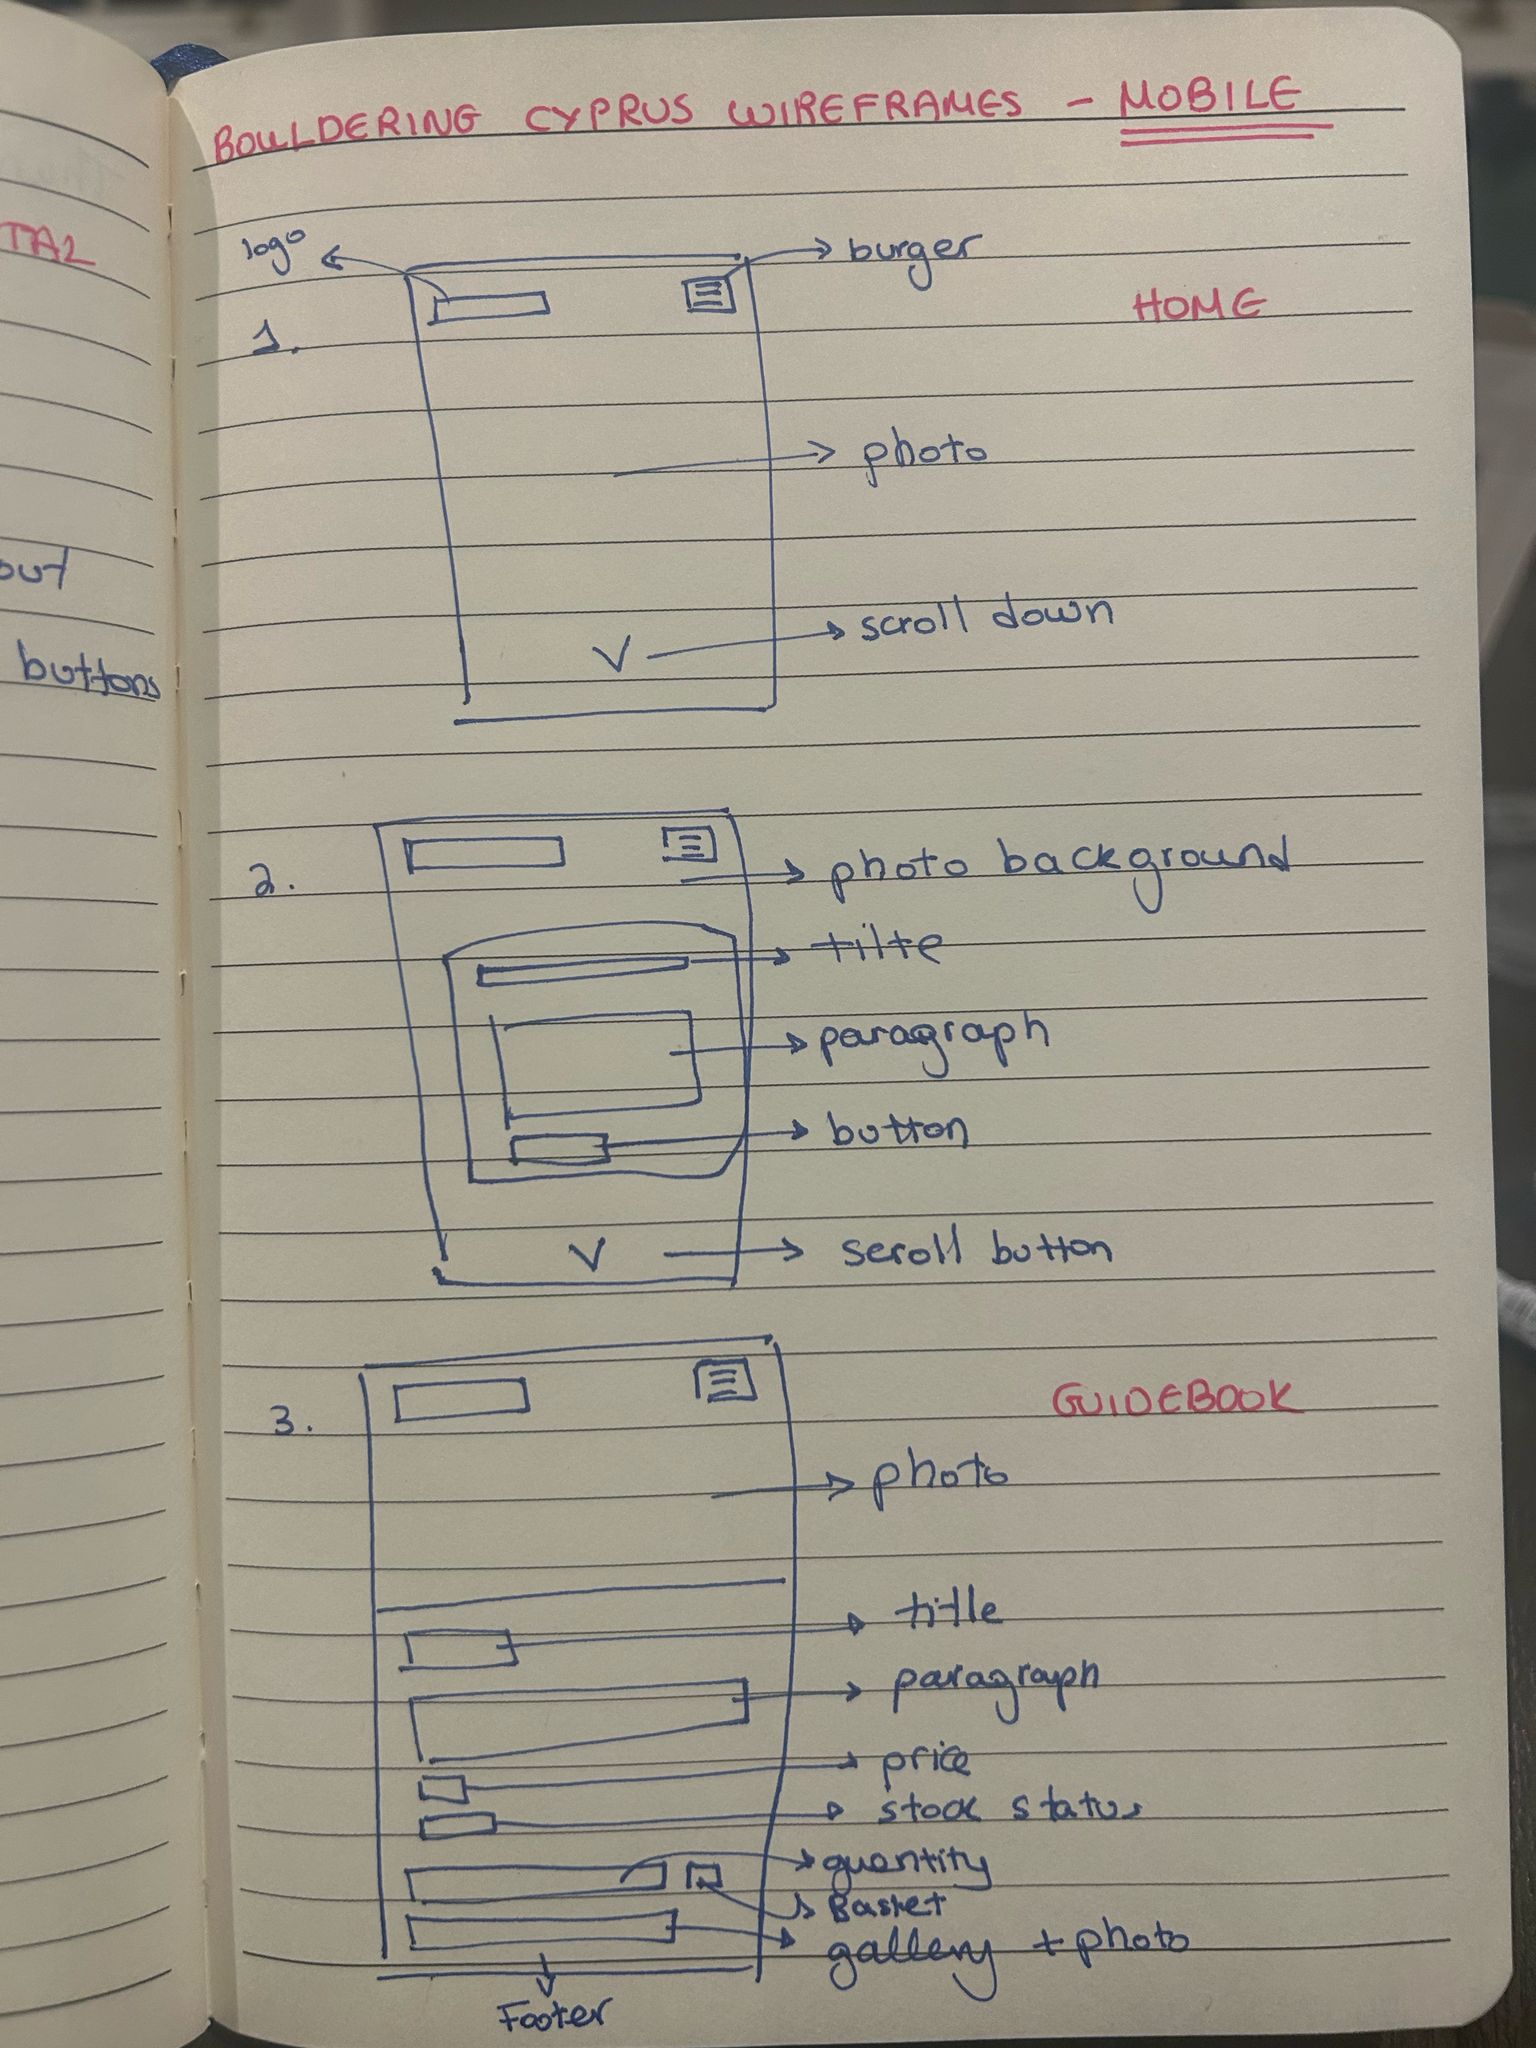 BOULDERING CYPRUS WIREFRAMES - MOBILE
TAL
out
buttons
logo
burger
1.
HOME
photo
scroll down
2.
photo background
tilte
paragraph
button
scroll button
3.
GUIDEBOOK
photo
title
paragraph
price
stock status
quantity
Basket
gallery + photo
Footer